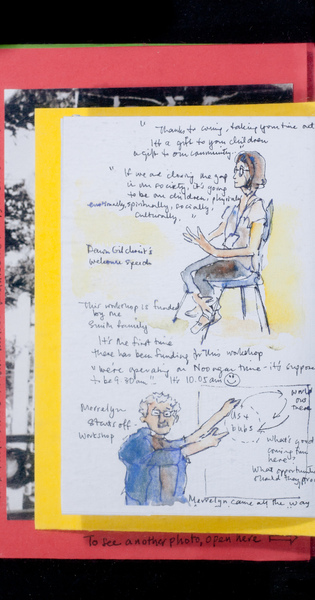 " Thanks to coming, taking your time out
It's a gift to your children
a gift to our community."
" If we are closing the gap
in our society, it's going
to be our children, physically
emotionally, spiritually, socially,
culturally. "
Dawn Gilchrist's
welcome speech
This workshop is funded
by the
Smith family
It's the first time
there has been funding for this workshop
" We're operating on Noongar time - it's suppose
to be 9.30am " It's 10.05am
Merrelyn
starts off
workshop
world
out
there
us +
bubs
what's good
coming from
here?
What opportunit
should they
Merrelyn came all the way
To see another photo, open here